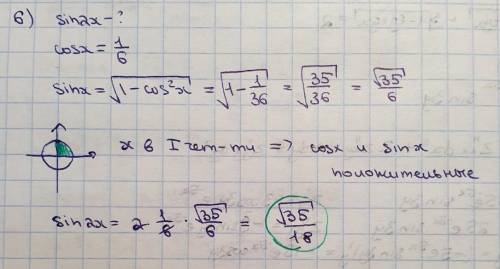 6) sin2x - ?
cosx = 1/6
sinx = √(1-cos²x) = √(1-1/36) = √(35/36) = √35/6
x в I чет-ти => cosx и sinx
положительные
sin2x = 2 · 1/6 · √35/6 = √35/18